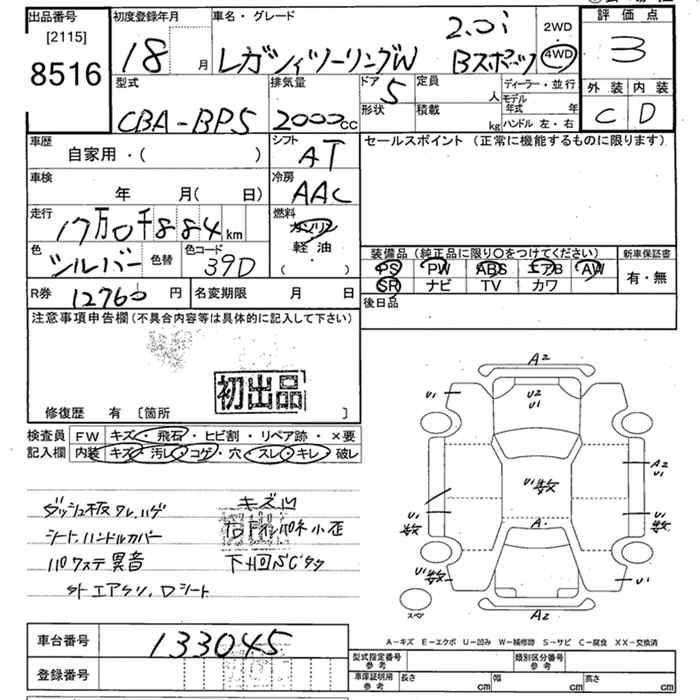 出品番号
[2115]
8516
初度登録年月
18 月
車名・グレード
2.0i
レガシィツーリングW Bスポーツ
2WD
4WD
評価点
3
外装 内装
C D
型式
CBA-BP5
排気量
2000cc
ドア 5
形状
定員 人
積載 kg
ディーラー・並行
モデル年式 年
ハンドル 左・右
車歴
自家用・( )
シフト
AT
車検
年 月( 日)
冷房
AAC
走行
17万0千884km
燃料
ガソリン
軽油
( )
色
シルバー
色替
色コード
39D
R券 12760 円
名変期限 月 日
セールスポイント (正常に機能するものに限ります)
装備品 (純正品に限り○をつけてください)
PS PW ABS エアB AW
SR ナビ TV カワ
新車保証書
有・無
後日品
注意事項申告欄 (不具合内容等は具体的に記入して下さい)
初出品
修復歴 有 [箇所 ]
検査員記入欄
FW キズ・飛石・ヒビ割・リペア跡・×要
内装 キズ・汚レ・コゲ・穴・スレ・キレ・破レ
シートハンドルカバー
パワステ異音
A2
U1
U2
U1
U1数
A2
U1
U1数
U1
U1数
A.
U1数
U1
A2
スペア
A-キズ E-エクボ U-凹み W-補修跡 S-サビ C-腐食 XX-交換済
車台番号
133045
登録番号
型式指定番号 参考
類別区分番号 参考
車庫証明用 参考
長さ cm
幅 cm
高さ cm